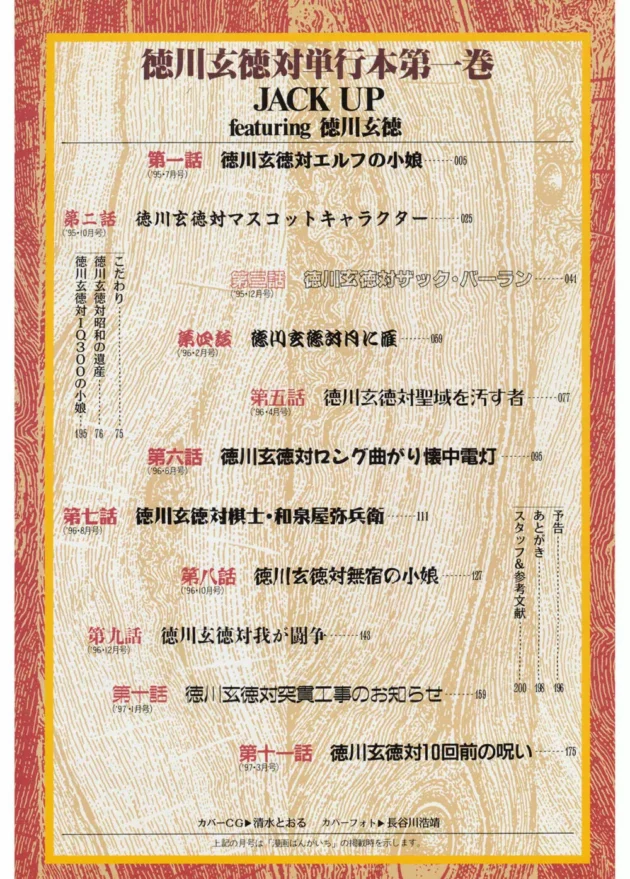 徳川玄徳対単行本第一巻
JACK UP
featuring 徳川玄徳
第一話 徳川玄徳対エルフの小娘……005
('95・7月号)
第二話 徳川玄徳対マスコットキャラクター……025
('95・10月号)
第三話 徳川玄徳対ザック・バーラン……041
('95・12月号)
こだわり……75
徳川玄徳対昭和の遺産……76
徳川玄徳対IQ300の小娘…195
第四話 徳川玄徳対月に雁……059
('96・2月号)
第五話 徳川玄徳対聖域を汚す者……077
('96・4月号)
第六話 徳川玄徳対ロング曲がり懐中電灯……095
('96・6月号)
第七話 徳川玄徳対棋士・和泉屋弥兵衛……111
('96・8月号)
予告……196
あとがき……198
スタッフ&参考文献……200
第八話 徳川玄徳対無宿の小娘……127
('96・10月号)
第九話 徳川玄徳対我が闘争……143
('96・12月号)
第十話 徳川玄徳対突貫工事のお知らせ……159
('97・1月号)
第十一話 徳川玄徳対10回前の呪い……175
('97・3月号)
カバーCG▶清水とおる カバーフォト▶長谷川浩靖
上記の月号は「漫画ばんがいち」の掲載時を示します。